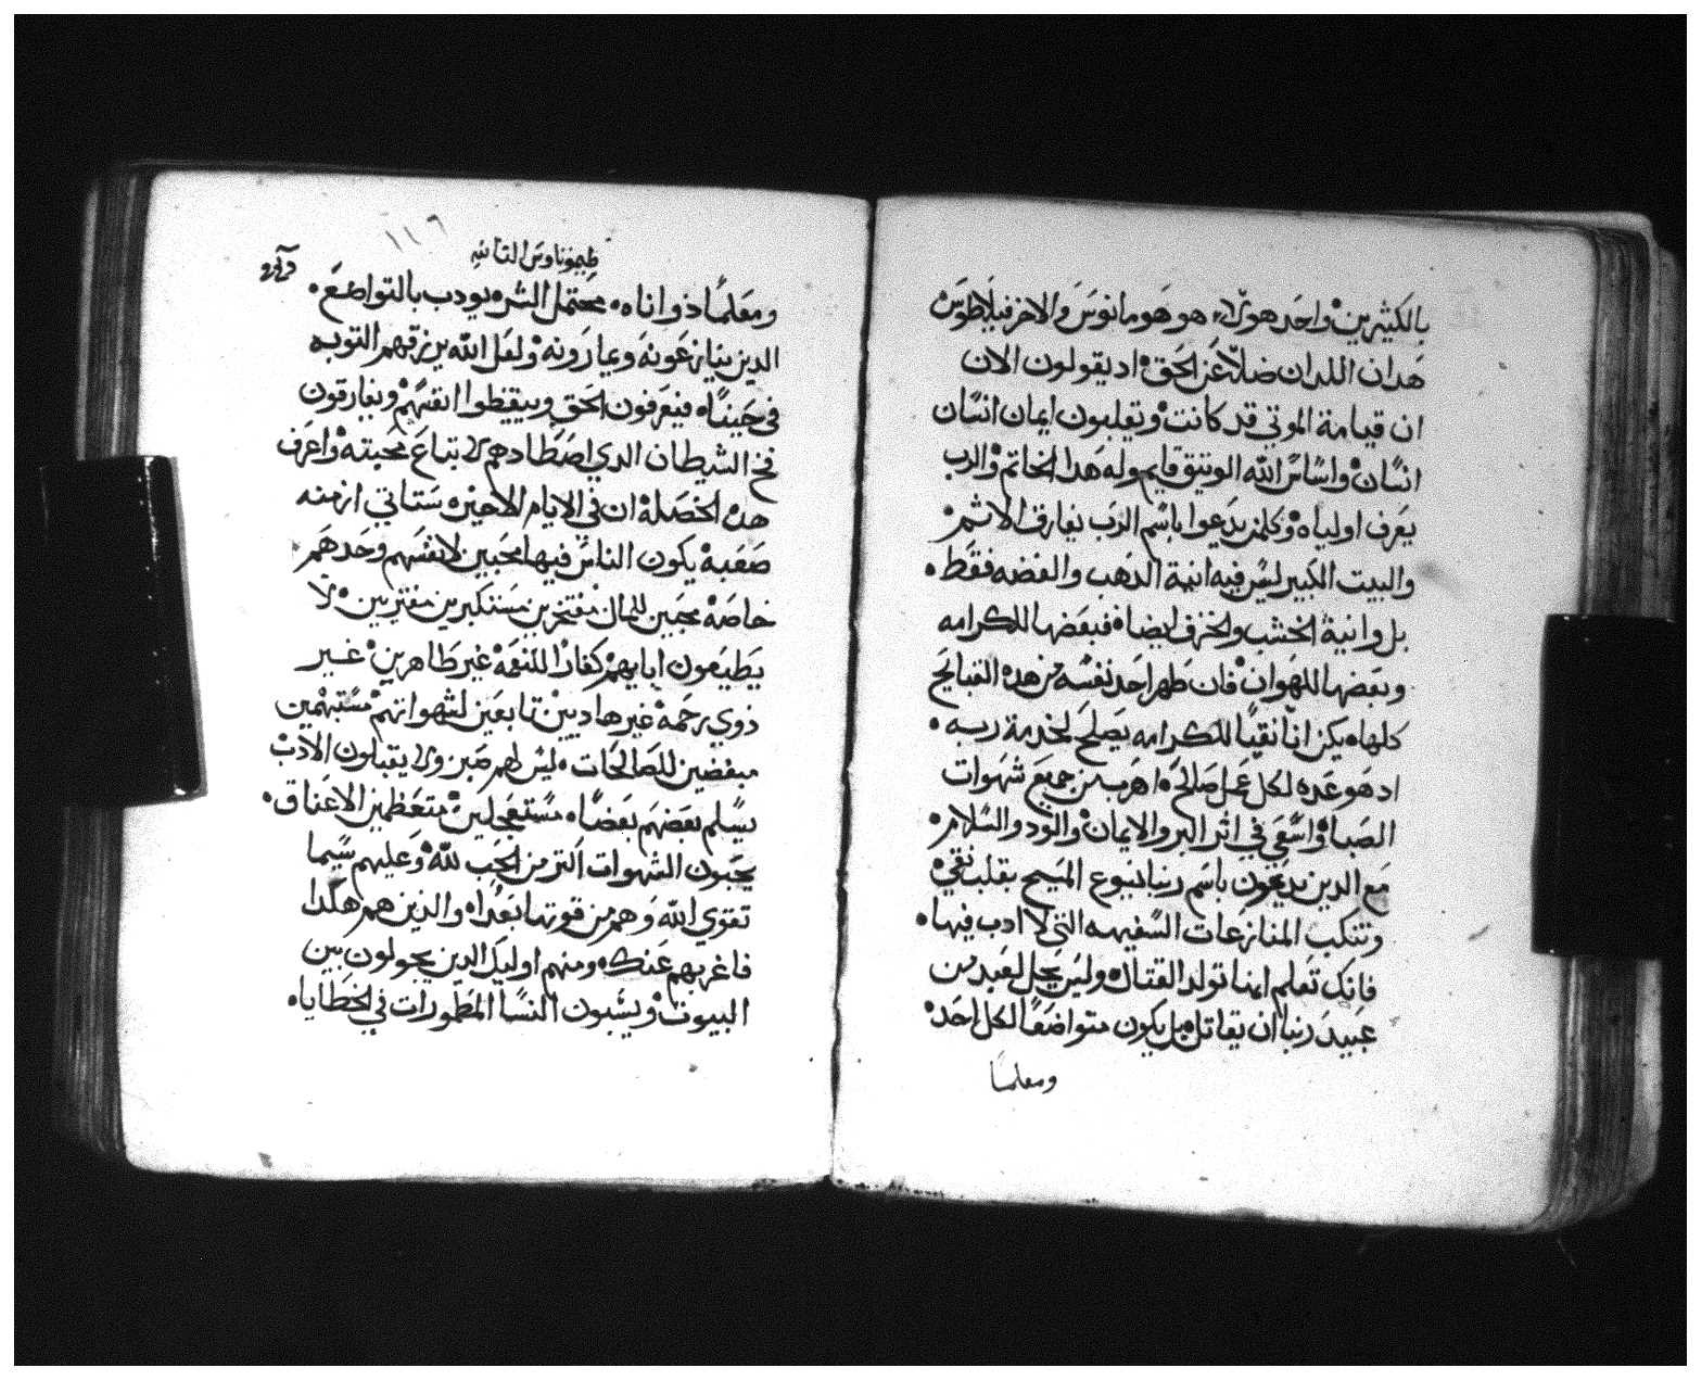 بالكثيرين واحد هولاء هو هومانوس والاخر فيلاطوس
هدان اللدان ضلا عن الحق اد يقولون الان
ان قيامة الموتي قد كانت ويقلبون ايمان انسان
انسان واساس الله الوتيق قايم وله هدا الخاتم والرب
يعرف اولياه وكلمن يدعوا باسم الرب يفارق الاثم
والبيت الكبير ليس فيه انية الدهب والفضه فقط
بل وانية الخشب والخزف ايضا فبعضها للكرامه
وبعضها للهوان فان طهر احد نفسه من هده القبايح
كلها يكن انا نقيا للكرامه يصلح لخدمة ربه
اد هو عده لكل عمل صالح اهرب من جميع شهوات
الصبا واسعي في اثر البر والايمان والود والسلام
مع الدين يدعون باسم ربنا يسوع المسيح بقلب نقي
وتنكب المنازعات السفيهه التي لا ادب فيها
فانك تعلم انها تولد القتال وليس يحل لعبد من
عبيد ربنا ان يقاتل بل يكون متواضعا لكل احد
ومعلما
١١٦
طيموتاوس التانيه
ومعلما دو اناه محتمل الشر يودب بالتواضع
الدين ينازعونه ويمارونه ولعل الله يرزقهم التوبه
في حينا فيعرفون الحق ويتيقظوا انفسهم ويفارقون
فخ الشيطان الدي اصطادهم لاتباع محبته واعرف
هده الخصلة ان في الايام الاخيره ستاتي ازمنه
صعبة يكون الناس فيها محبين لانفسهم وحدهم
خاصة محبين للمال مفتخرين مستكبرين مفتريين لا
يطيعون ابايهم كفار النعمة غير طاهرين غير
دوي رحمة غير هاديين تابعين لشهواتهم مستبهمين
مبغضين للصالحات ليس لهم صبر ولا يقبلون الادب
يسلم بعضهم بعضا مستعجلين متعظمين الاعناق
يحبون الشهوات اكتر من الحب لله وعليهم سيما
تقوي الله وهم من قوتها بعدا والذين هم هكدا
فاغربهم عنك ومنهم اوليك الدين يجولون بين
البيوت ويسبون النسا المطمورات في الخطايا